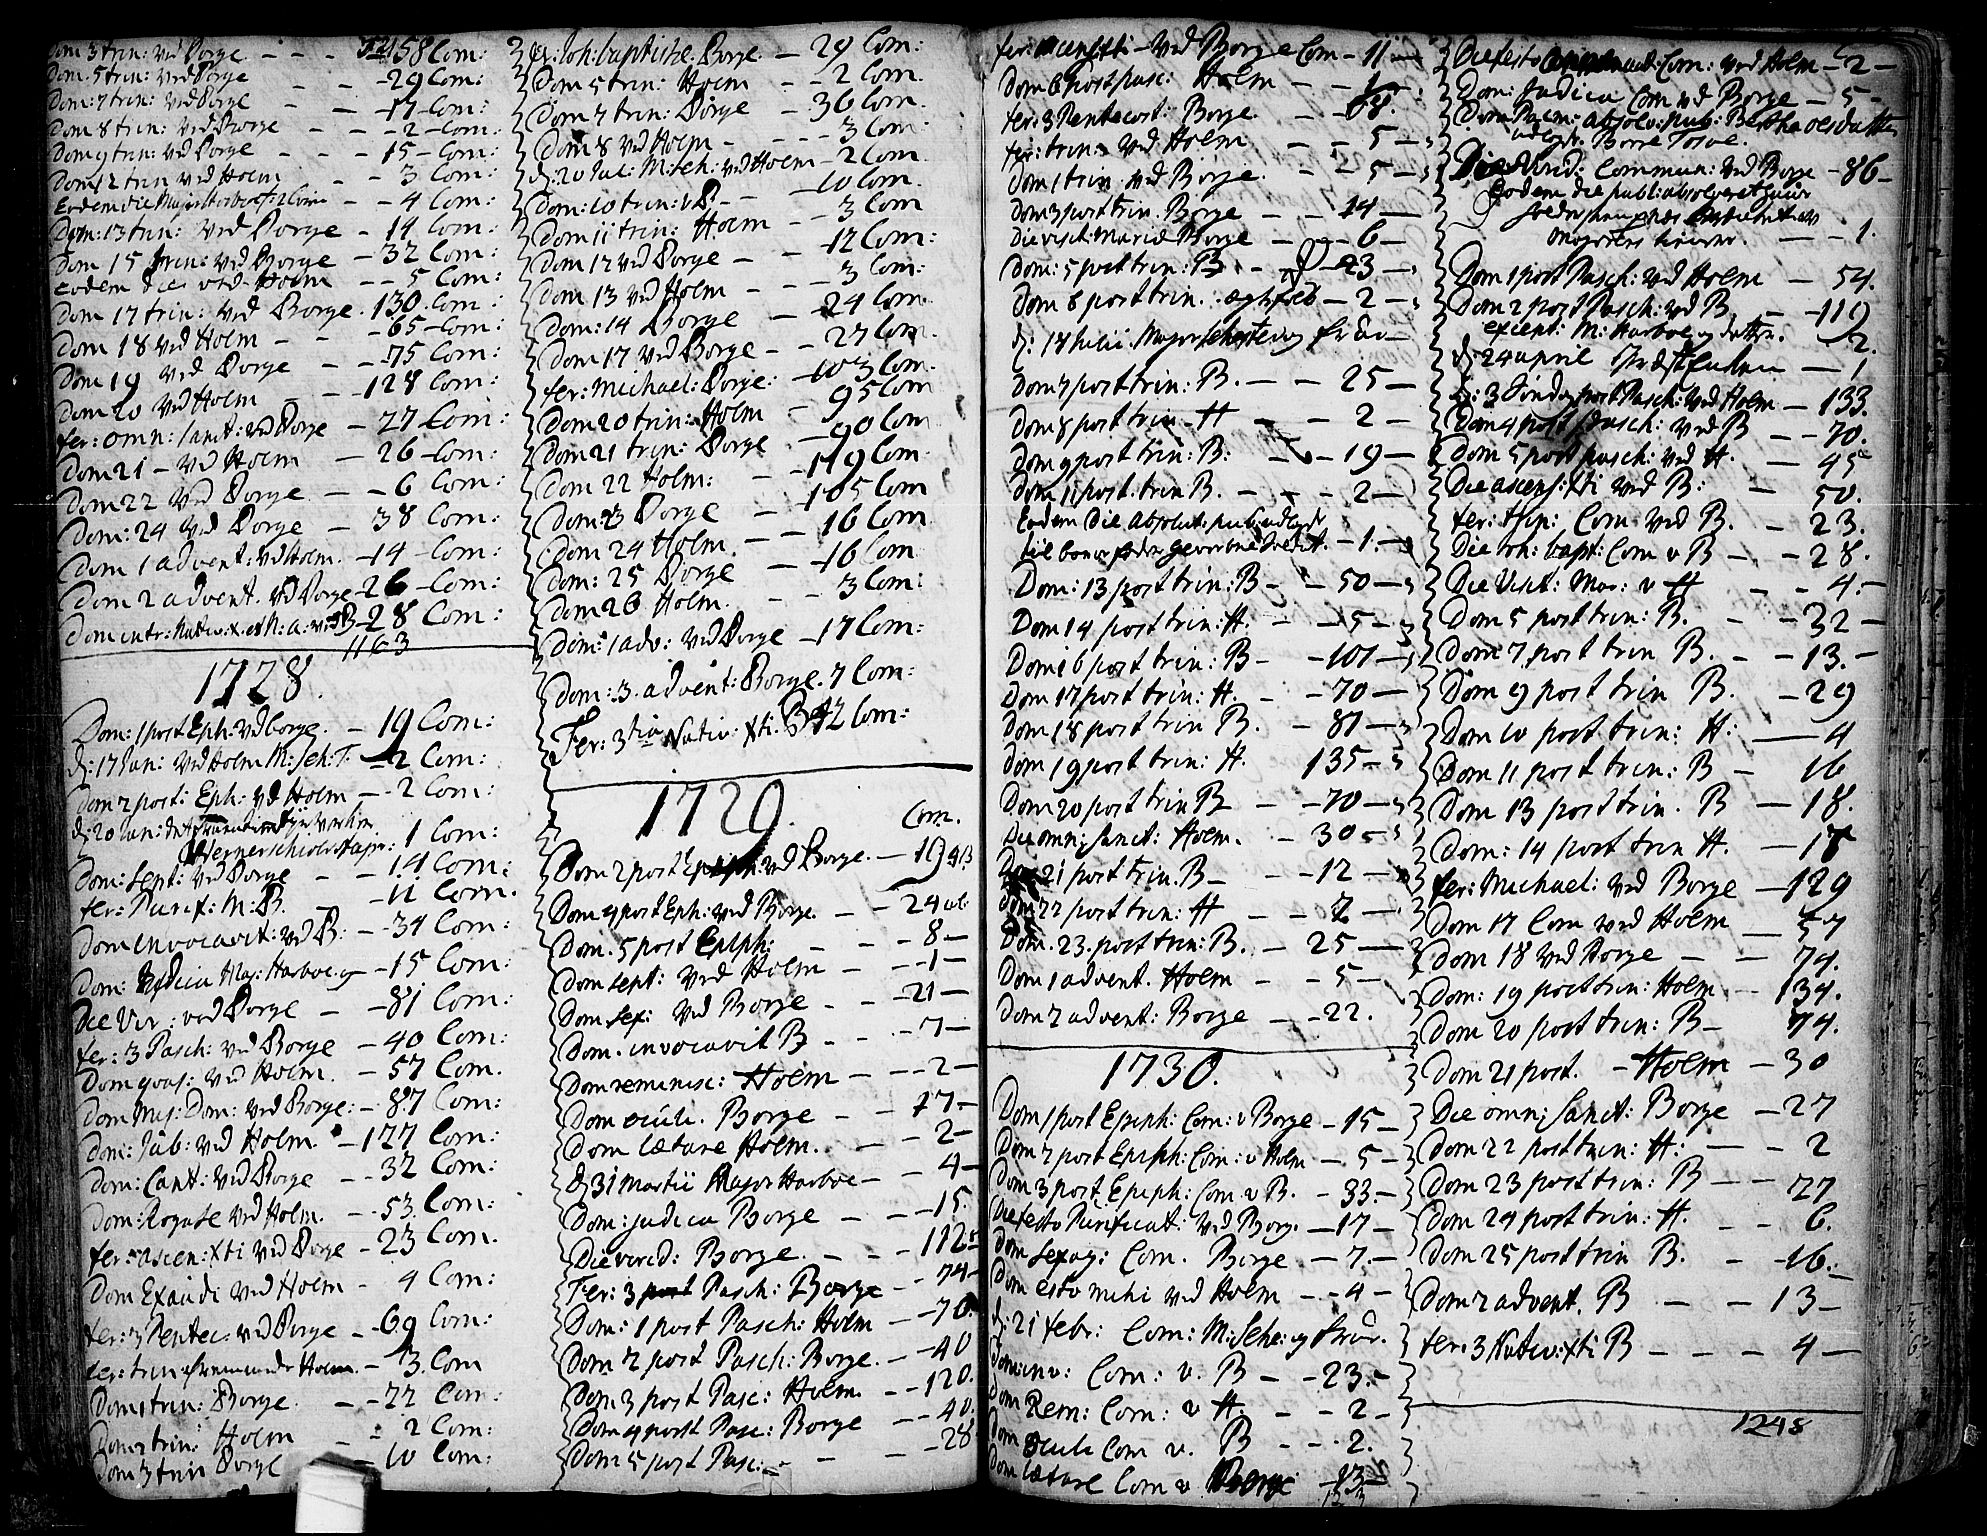 Dom 3 trin: ved Borge - - - 58 Com:
Dom. 5 trin: ved Borge - - 29 Com:
Dom: 7 trin: ved Borge - - 17 - Com:
Dom 8 trin: ved Borge - - 2 - Com:
Dom 9 trin: ved Borge - - - 15 - Com:
Dom 12 trin ved Holm - - 3 Com:
Eodem die Major Harboe - - 4 Com:
Dom: 13 trin: ved Borge - 14 Com:
Dom 15 trin: ved Borge - 32 Com:
Eodem die ved Holm - - 5 Com:
Dom 17 trin: ved Borge. 130 Com:
Dom 18 ved Holm - - 65 - Com:
Dom 19 ved Borge - - 75 Com:
Dom 20 ved Holm - - 128 Com:
fer: omn: sanct: ved Borge - 27 Com:
Dom 21 - ved Holm - 26 - Com:
Dom 22 ved Borge - - 6 Com:
Dom: 24 ved Borge - 38 Com:
Dom 1 advent: ved Holm. - 14 - Com:
Dom 2 advent. ved Borge - 26 - Com:
Dom intr: nativ: x. et N: a: ved B - 28 Com:
1163
1728.
Dom: 1 post Eph: ved Borge. - 19 Com:
d: 17 Jan: ved Holm M: Seh: T. - 2 Com:
Dom 2 post: Eph: ved Holm - - 2 Com:
d: 20 Jan:
Wernerschiolds 1 Com:
Dom: Sept: ved Borge - - 14 Com:
fer: Purif: M: B. - 11 Com.
Dom Invocavit: ved B: - - 34 Com:
Dom: Judica Maj: Harboe og - 15 Com:
Die Vir: ved Borge - - 81 Com:
fer: 3 Pasch: ved Borge - 40 Com:
Dom qvas: ved Holm. - 57 Com.
Dom Mis: Dom: ved Borge: - 87 Com:
Dom: Jub: ved Holm. - 127 Com:
Dom: Cant: ved Borge - - 32 Com:
Dom: Rogate ved Holm. - 53 Com:
fer: ascen: Xti ved Borge - 23 Com.
Dom Exaudi ved Holm - 4 Com:
fer: 3 Pentec: ved Borge - 69 Com:
fer: trin Holm - 3. Com
Dom 1 trin: Borge. - - 22 Com:
Dom 2 trin: Holm - - 2 Com:
Dom 3 trin Borge - 10 Com:
fer: Joh: baptistæ. Borge. - 29 Com:
Dom 5 trin: Holm - - 2 Com.
Dom 7 trin: Borge - 36 Com.
Dom 8 ved Holm - - - 3 Com:
d: 20 Jul: M: Seh: ved Holm - 2 Com.
Dom: 10 trin: v B - - 10 Com.
Dom 11 trin: Holm - - 3 Com
Dom 12 ved Borge - - 12 Com:
Dom 13 ved Holm - - - 3 Com:
Dom: 14 Borge - 24 Com:
Dom 17 ved Borge - - 27 Com.
fer: Michael: Borge: - 103 Com.
Dom 20 trin: Holm - 95 Com
Dom 21 trin: Borge - 90 Com
Dom 22 Holm: - 119 Com.
Dom: 23 Borge - 105 Com
Dom 24 Holm. - - 16 Com
Dom: 25 Borge - - 16 Com
Dom 26 Holm. - - 3 Com:
Dom: 1 adv: ved Borge - 17 Com:
Dom: 3. advent: Borge. 7 Com:
Fer: 3tia Nativ: Xti: B 42 Com:
1729.
Com.
Dom 2 post Epiph: ved Borge. - 19
Dom 4 post Eph: ved Borge. - - 24
Dom. 5 post Epiph: - - - 8 -
Dom sept: ved Holm - - - 1 -
Dom. sex: ved Borge - - 21 -
Dom. invocavit B - - - 7 -
Dom reminisc: Holm - - - 2 -
Dom oculi. Borge - - 17 -
Dom lætare Holm. - - 2 -
d 31 Martii Major Harboe - - 4 -
Dom: judica Borge - - - 15.
Die virid: Borge. - - - 112
Fer: 3 post Pasch: Borge - 74 -
Dom: 1 post Pasch: Holm - 70
Dom 2 post Pasch: Borge. - - 40
Dom 3 post Pasc: Holm. - - 120.
Dom 4 post Pasc: Borge - - 40.
Dom 5 post Pasc: - - - 28
fer: ascens: Xti - ved Borge Com - 11 -
Dom 6 post pasc: Holm - - 1 -
fer: 3 Pentecost: Borge - 68.
fer: trin: ved Holm - - 5 -
Dom 1 trin: ved Borge. - - 5 -
Dom 3 post trin. Borge - - 14 -
Die visit: Mariæ Borge - - 6 -
Dom: 5 post trin: B. - 23 -
Dom 8 post trin. - 2 -
d: 18 Julii. Major og frue -
Dom 7 post trin: B. - - 25 -
Dom 8 post trin - H - - 2 -
Dom 9 post trin: B: - - 19 -
Dom 11 post. trin B. - - - 2 -
Eodem die absolut: pub: udlagde
til - 1. -
Dom: 13 post trin: B - - 50 -
Dom 14 post trin: H. - - 5 -
Dom 16 post trin: B - - 101 -
Dom 17 post trin: H. - - 70 -
Dom 18 post trin B. - - 81 -
Dom 19 post trin: H. 135 -
Dom 20 post trin B - - 70 -
Die omn: Sanct: Holm. - 30 -
Dom 21 post trin. B - - 12 -
Dom 22 post trin: H - - 7 -
Dom. 23. post trin: B. - 25 -
Dom 1 advent. Holm - - 5 -
Dom 2 advent: Borge - - 22.
1730.
Dom 1 post Epiph: Com: v Borge - 15 -
Dom 2 post Epiph: Com: v Holm - 5 -
Dom 3 post Epiph: Com v B. - 33 -
Die festo Purificat: ved Borge. - 17 -
Dom sexag: Com. Borge - 7. -
Dom esto mihi ved Holm - - 4 -
d: 21 febr: Com: M: Sehe: og fruer.
Dom: inv: Com: v. B - - 23. -
Dom Rem: Com: v H. - - 2 -
Dom Oculi Com v. B - - - 2.
Dom lætare Com v Borge - 13 -
Die festo annunt: Com: ved Holm - 2 -
Dom: Judica Com ved Borge - 5 -
Dom Palm: absolv: pub: Bertha olsdatter
udlagde. Borre Torve.
Die Virid: Commun: ved Borge - 86 -
Eodem die publ: absolveret
majorens - - 1.
Dom 1 post Pasch: ved Holm - 54.
Dom 2 post Pasch: ved B - - 119
excent: M: Harboe og datter. - 2.
d: 24 april - 1
d: 3 Sønd: post Pasch: ved Holm - 133.
Dom 4 post Pasch: ved B - - 70.
Dom 5 post pasch: ved H. - 45
Die ascens: Xti ved B: - 50.
fer: trin: Com ved B. - 23.
Die Joh: bapt: Com v B - - 28.
Die Visit: Mar: v H - - 4. -
Dom 5 post trin: B. - - 32 -
Dom 7 post trin B. - - 13. -
Dom 9 post trin B. - 29
Dom 10 post trin: H: - 4
Dom 11 post trin: B - 16
Dom 13 post trin. B - 18.
Dom: 14 post trin H. - 18
fer: Michael: ved Borge - 129
Dom 17 Com ved Holm - 57
Dom 18 ved Borge - - 74.
Dom: 19 post trin: Holm - 134.
Dom 20 post trin: B - 74.
Dom 21 post. - Holm - 30
Die omn: Sanct: Borge - 27
Dom 22 post trin: H: - - 2
Dom 23 post trin: B - - 27
Dom 24 post trin: H. - - 6.
Dom 25 post trin B. - - 16. -
Dom 2 advent. B - - - 13 -
fer: 3 Nativ: Xti B - - - 4 -
1248